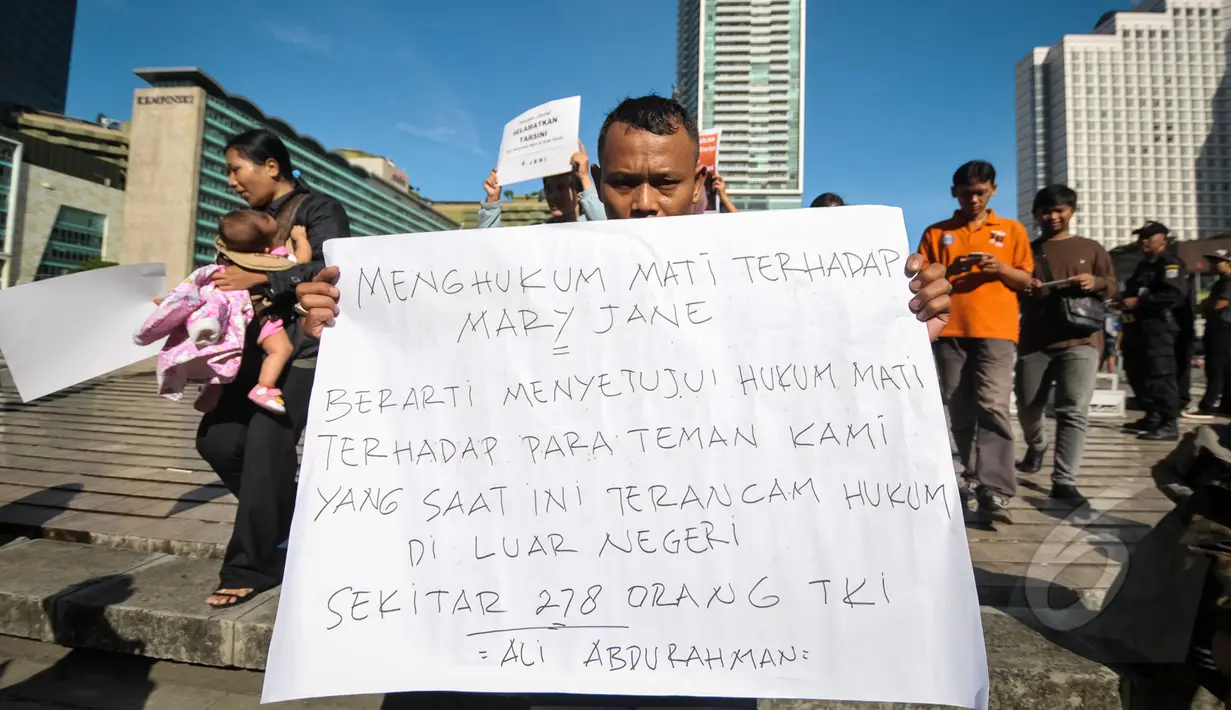 KEMPINSKI
SELAMATKAN
TARSINI
MENGHUKUM MATI TERHADAP
MARY JANE
BERARTI MENYETUJUI HUKUM MATI
TERHADAP PARA TEMAN KAMI
YANG SAAT INI TERANCAM HUKUM
DI LUAR NEGERI
SEKITAR 278 ORANG TKI
= ALI ABDURAHMAN =